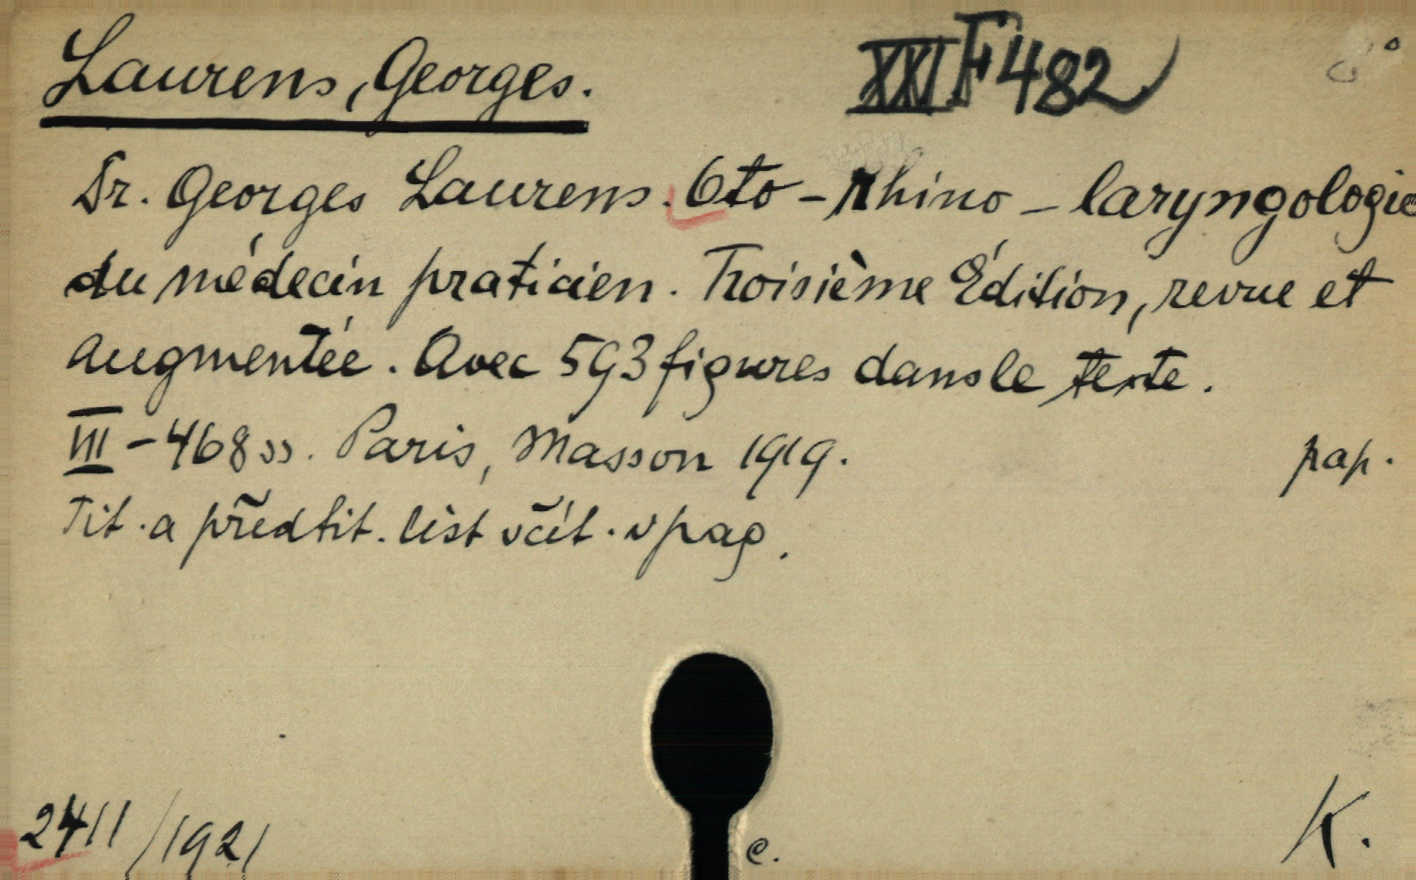 Laurens, Georges.
XXI F 482
8°
Dr. Georges Laurens. Oto-rhino-laryngologie
du médecin praticien. Troisième Édition, revue et
augmentée. Avec 593 figures dans le texte.
VIII-468 ss. Paris, Masson 1919. pap.
Tit. a předtit. list včít. v pag.
2411/1921
e.
K.